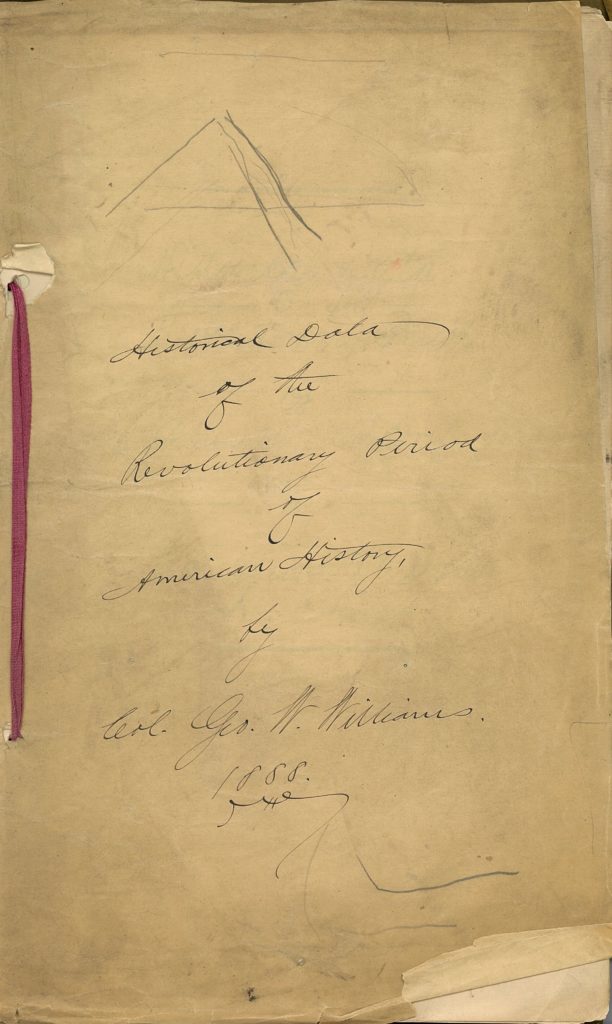 Historical Data
of the
Revolutionary Period
of
American History,
by
Col. Geo. W. Williams.
1888.